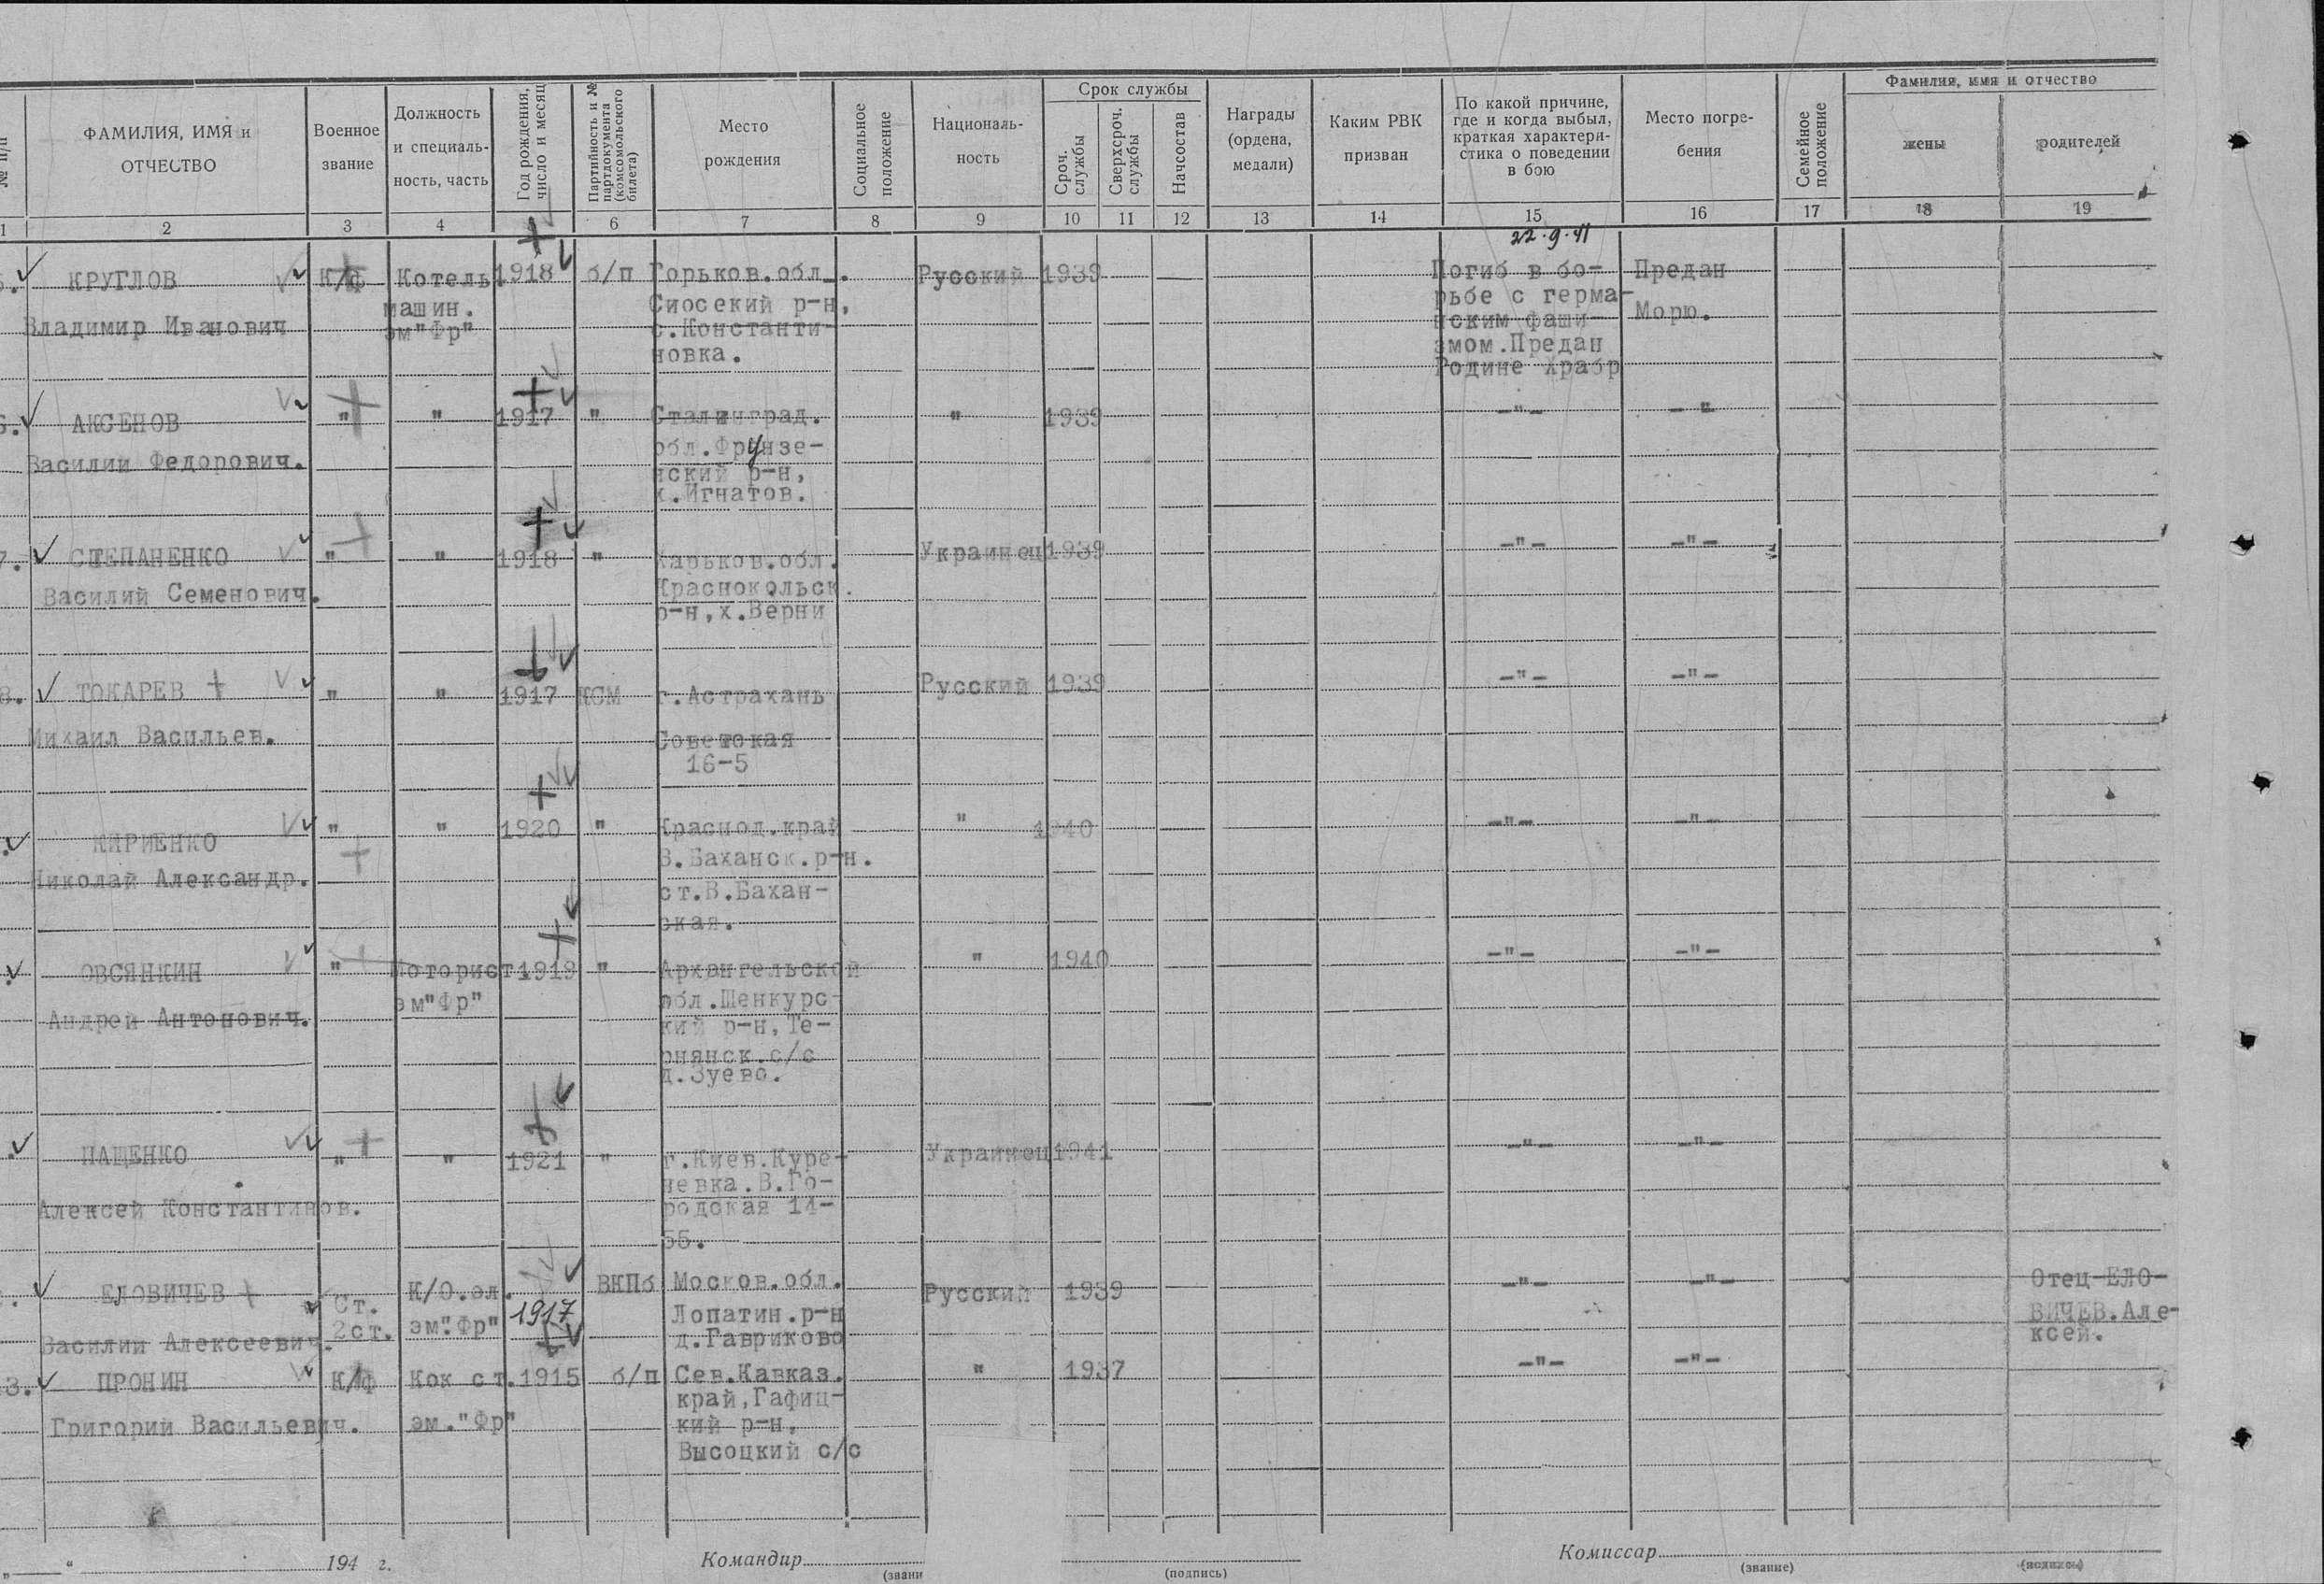 Фамилия, имя и отчество
Срок службы
№ п/п
ФАМИЛИЯ, ИМЯ и
ОТЧЕСТВО
Военное
звание
Должность
и специаль-
ность, часть
Год рождения,
число и месяц
Партийность и №
партдокумента
(комсомольского
билета)
Место
рождения
Социальное
положение
Националь-
ность
Сроч.
службы
Сверхсроч.
службы
Начсостав
Награды
(ордена,
медали)
Каким РВК
призван
По какой причине,
где и когда выбыл,
краткая характери-
стика о поведении
в бою
Место погре-
бения
Семейное
положение
жены
родителей
1 2 3 4 6 7 8 9 10 11 12 13 14 15 16 17 18 19
22.9.41
КРУГЛОВ К/ф Котель 1918 б/п Горьков.обл. Русский 1939 Погиб в бо- Предан
Владимир Иванович машин. Сиосекий р-н, рьбе с герма- Морю.
эм"Фр" с.Константи- нским фаши-
новка. змом.Предан
Родине Храбр
6. АКСЕНОВ " " 1917 " Сталинград. " 1939 -"- -"-
Василий Федорович. обл.Фрунзе-
нский р-н,
х.Игнатов.
7. СТЕПАНЕНКО " " 1918 " Харьков.обл. Украинец 1939 -"- -"-
Василий Семенович. Краснокольск.
р-н,х.Верни
8. ТОКАРЕВ " " 1917 КСМ г.Астрахань Русский 1939 -"- -"-
Михаил Васильев. Советокая
16-5
КИРИЕНКО " " 1920 " Краснод.край " 1940 -"- -"-
Николай Александр. В.Баханск.р-н.
ст.В.Бахан-
ская.
ОВСЯНКИН " Моторист. 1919 " Архангельской " 1940 -"- -"-
Андрей Антонович. эм"Фр" обл.Шенкурс-
кий р-н,Те-
рнянск.с/с
д.Зуево.
ПАЩЕНКО " " 1921 " г.Киев.Куре- Украинец 1941 -"- -"-
Алексей Константинов. невка.В.Го-
родская 14-
55.
ЕЛОВИЧЕВ Ст. К/О.эл. 1917 ВКПб Москов.обл. Русский 1939 -"- -"- Отец-ЕЛО-
Василий Алексеевич. 2ст. эм."Фр" Лопатин.р-н ВИЧЕВ.Але-
д.Гавриково ксей.
3. ПРОНИН К/ф Кок ст. 1915 б/п Сев.Кавказ. " 1937 -"- -"-
Григорий Васильевич. эм."Фр" край,Гафиц-
кий р-н,
Высоцкий с/с
„ “ 194 г. Командир Комиссар
(звани (подпись) (звание) (подпись)